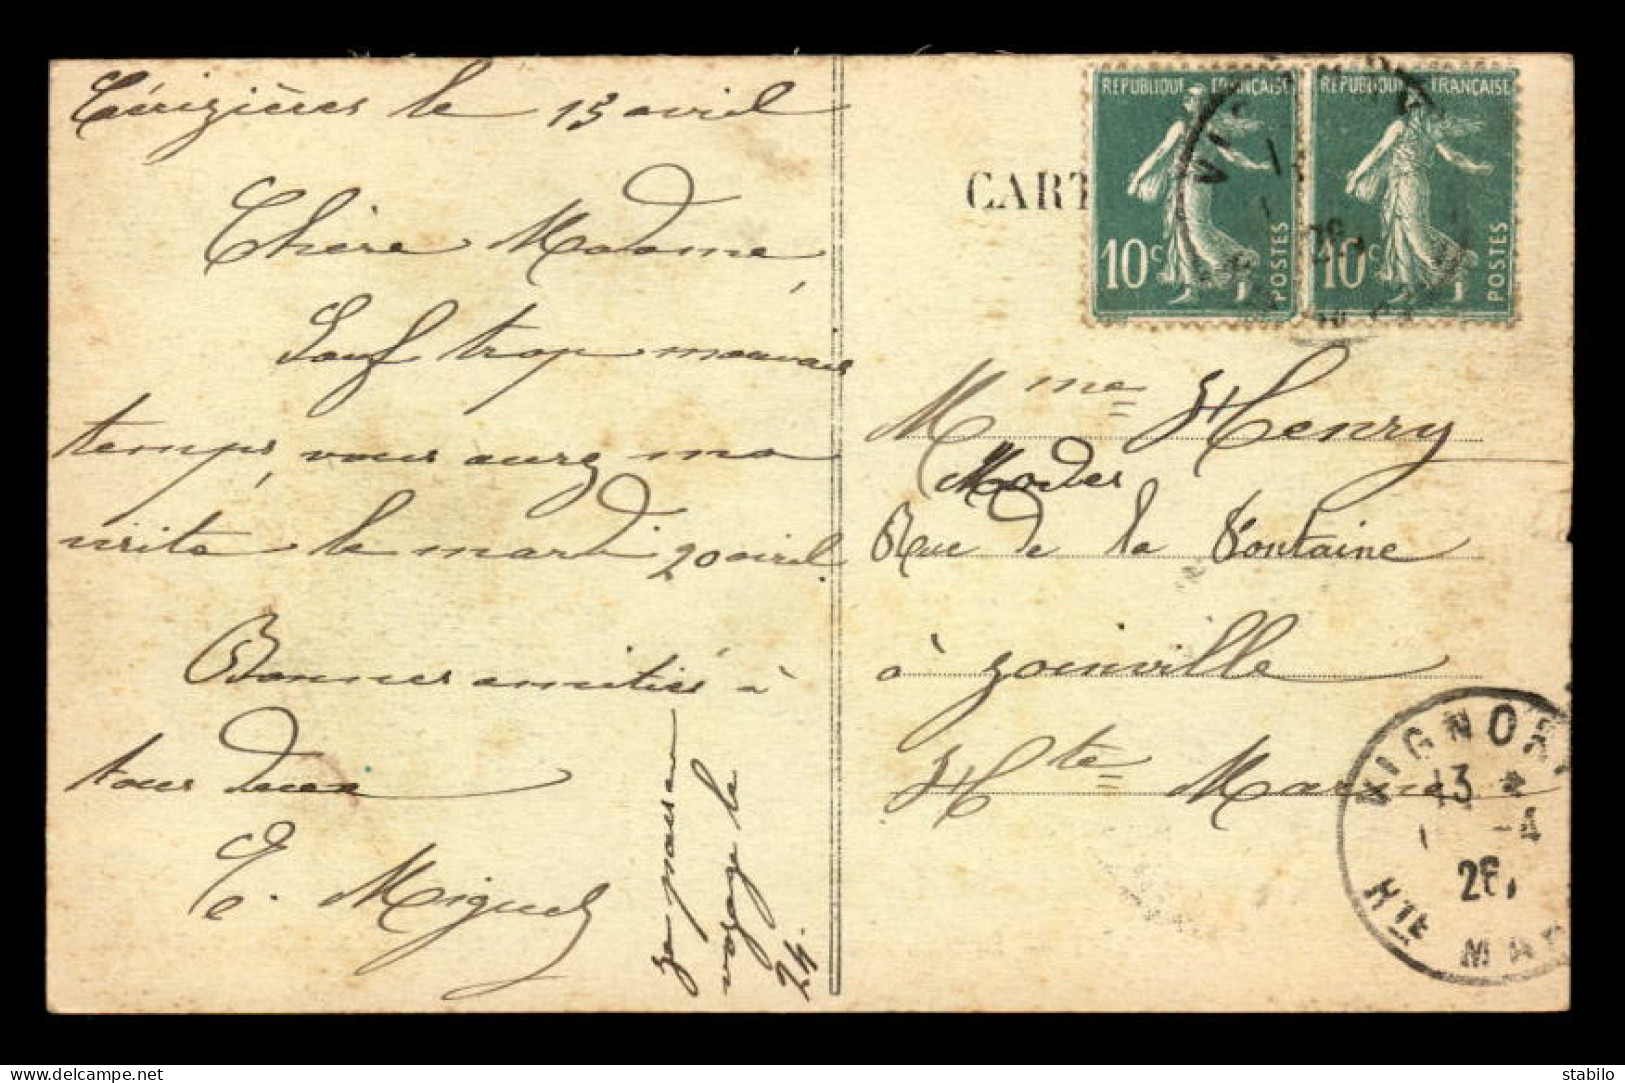 Cérizières le 13 avril
Chère Madame,
Sauf trop mauvais
temps, vous aurez ma
visite le mardi 20 avril.
Bonnes amitiés à
tous deux
E. Miguel
je passe en
voyage le
24.
CART
REPUBLIQUE FRANÇAISE
10c
POSTES
REPUBLIQUE FRANÇAISE
10c
POSTES
Mme Henry
Modes
Rue de la Fontaine
à Joinville
Hte Marne
VIGNORY
13 -4
26
HTE MAR
delcampe.net
stabilo